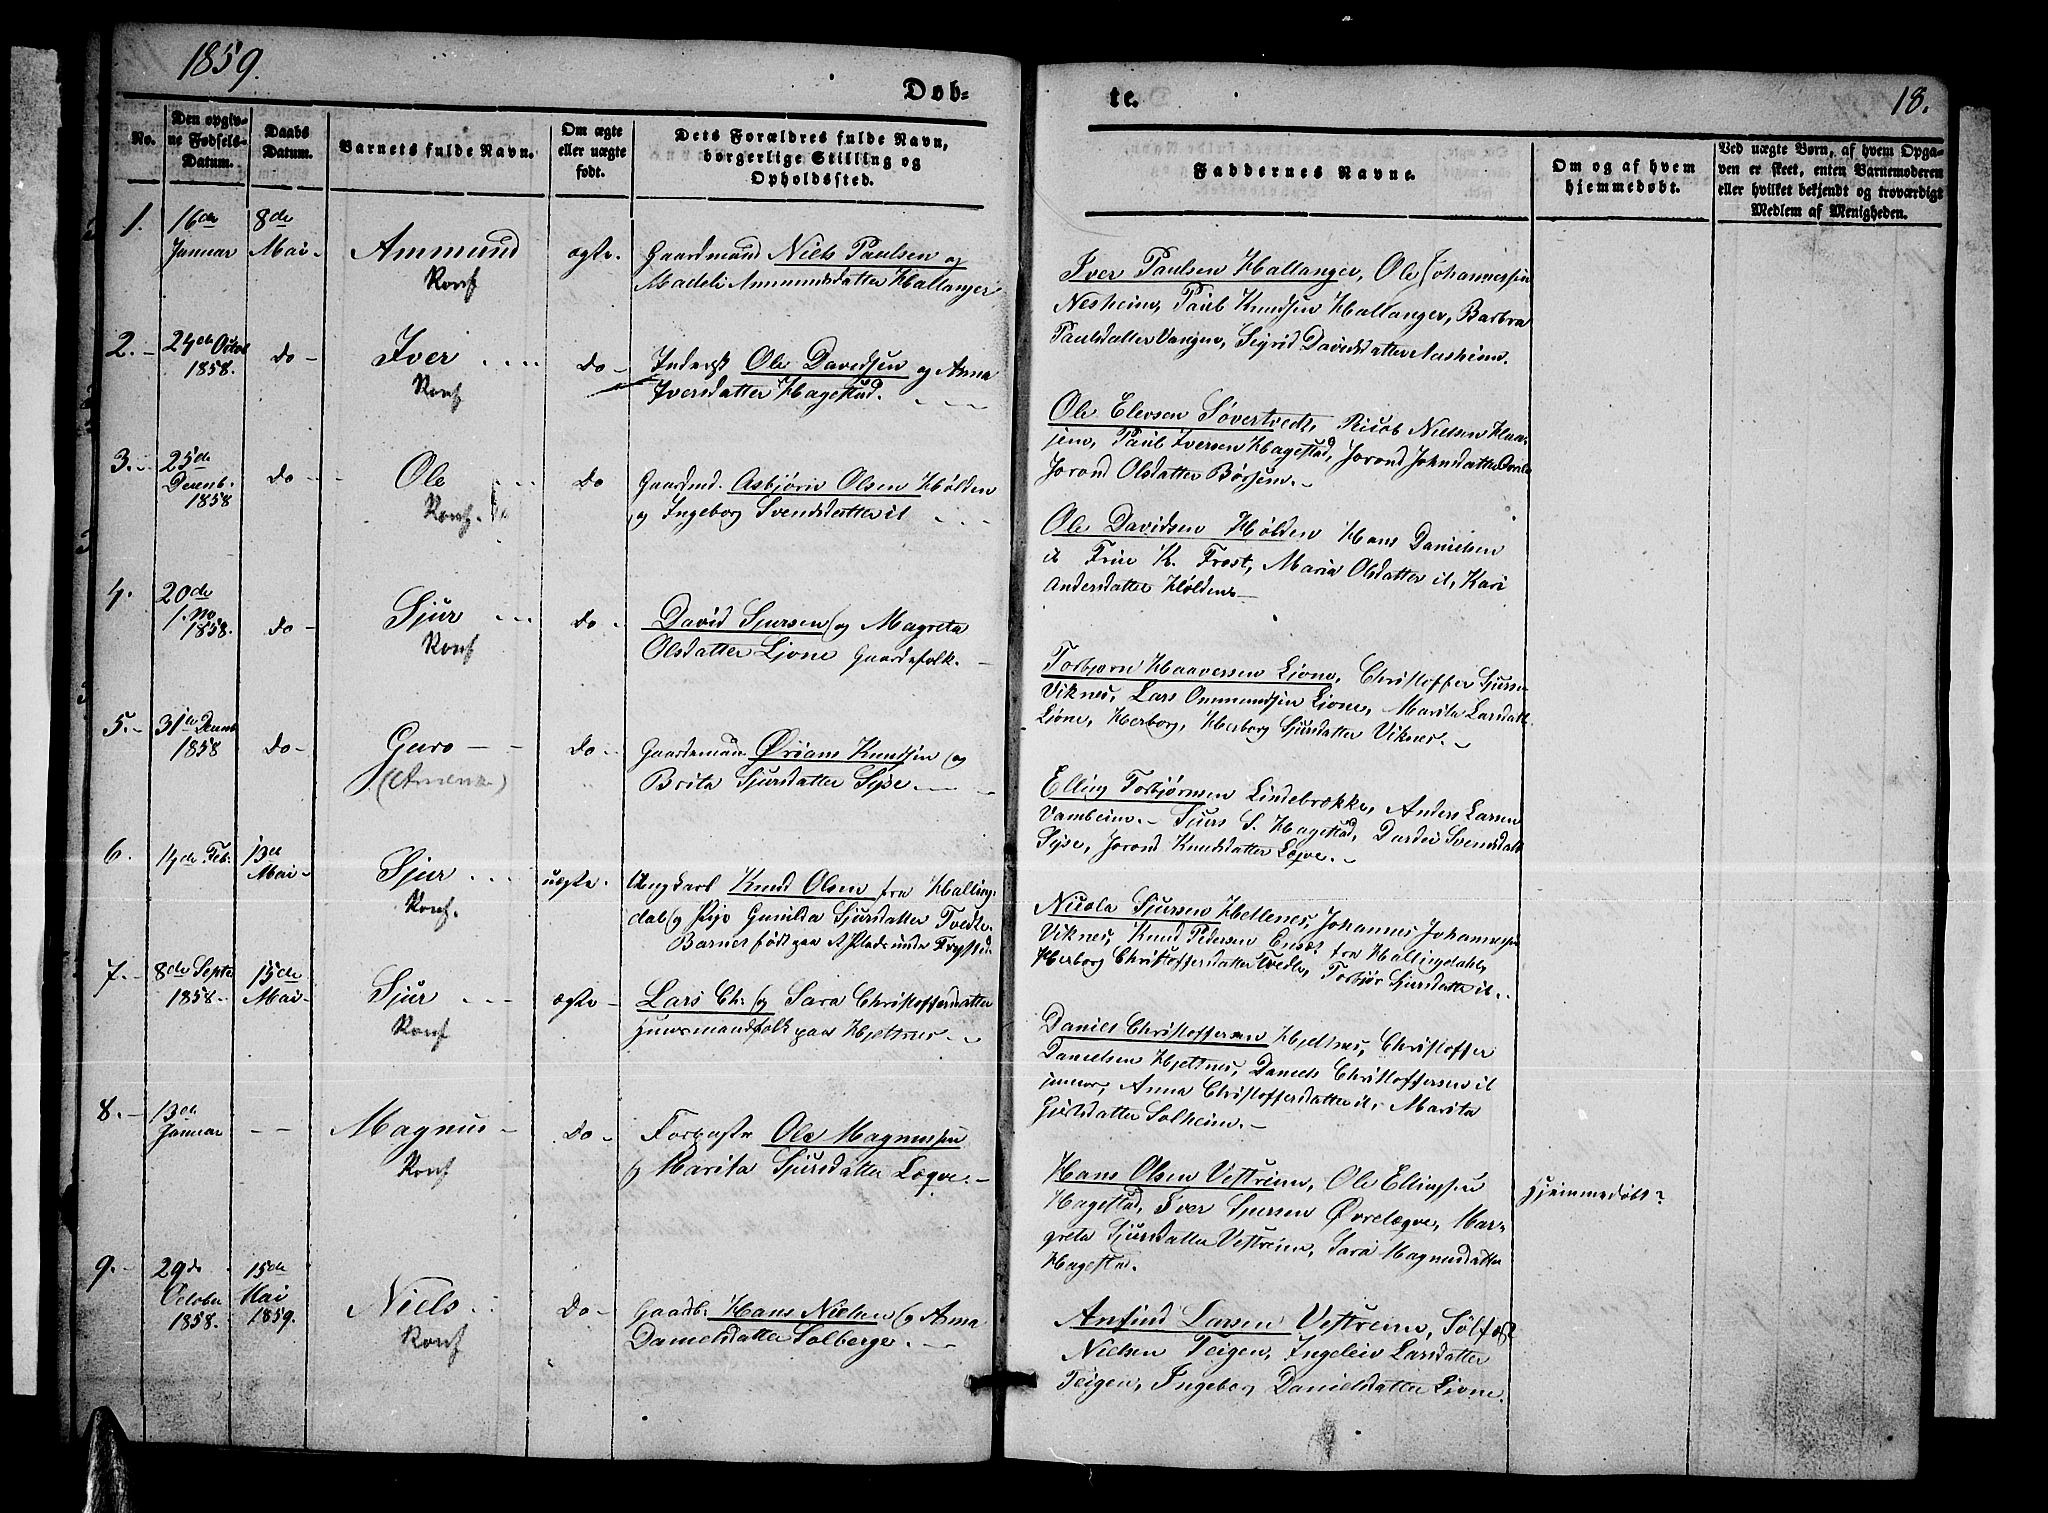 1859.
Døb-
te.
18.
No.
Den opgiv-
ne Fødsels-
Datum.
Daabs
Datum.
Barnets fulde Navn.
Om ægte
eller uægte
født.
Dets Forældres fulde Navn,
borgerlige Stilling og
Opholdssted.
Faddernes Navne.
Om og af hvem
hjemmedøbt.
Ved uægte Børn, af hvem Opga-
ven er skeet, enten Barnemoderen
eller hvilket bekjendt og troværdigt
Medlem af Menigheden.
1.
16de
Januar
8de
Mai
Ammund
Konf
ægte.
Gaardmand Niels Paulsen og
Madeli Ammundsdatter Hallanger
Iver Paulsen Hallanger, Ole Johannessen
Nesheim, Paul Knudsen Hallanger, Barbra
Paulsdatter Vangen, Sigrid Davidsdatter Aasheim.
2.
24de Octob
1858.
do
Iver
Konf
do
Inderst Ole Davidsen og Anna
Iversdatter Hagestad.
Ole Elevsen Søvertvedt, Nielsen
Paul Iversen Hagestad, Jorond Johnsdatter
Jorond Olsdatter Børsjem.
3.
25de
Decemb.
1858
do
Ole
Konf.
do
Gaardmd. Asbjørn Olsen Hølden
og Ingeborg Svendsdatter it
Ole Davidsen Hølden Hans Danielsen
it K. Frost, Maria Olsdatter it, Kari
Andersdatter Hølden
4.
20de
1858.
do
Sjur
Konf
do
David Sjursen og Magreta
Olsdatter Ljone Gaardefolk.
Torbjørn Haaversen Ljone, Christoffer Sjursen
Viknes, Lars Ommundsen Ljone, Marita Larsdatt.
Ljone, Herborg, Herborg Sjursdatter Viknes.
5.
31te Decemb
1858
do
Guro
do
Gaardemand Ørjans Knudsen og
Brita Sjursdatter Syse.
Elling Torbjørnsen Lindebrække, Anders Larsen
Vambeim. Sjurs S. Hagestad, Dardei Svendsdatt
Syse, Jorond Knudsdatter Lægve.
6.
14de Feb.
13de
Mai
Sjur
Konf.
uægte.
Ungkarl Knud Olsen fra Halling-
dal og Pige Gunilda Sjursdatter Tvedte.
Barnet født paa et Plads under Trystad.
Nicola Sjursen Hellenes, Johannes Johannesen
Viknes, Knud Pedersen fra Hallingdahl,
Herborg Christoffersdatter Tvedte, Torbjør Sjursdatter it.
7.
8de Septe
1858.
15de
Mai
Sjur
Konf
ægte
Lars Ch: og Sara Christoffersdatter
Huusmandfolk paa Hjeltnes.
Daniel Christoffersen Hjeltnes, Christoffer
Danielsen Hjeltnes, Daniels Christoffersen it
junior, Anna Christoffersdatter it, Marita
Sjursdatter Solheim.
8.
13de
Januar
Magnus
Konf
do
Forpagter Ole Magnussen
og Marita Sjursdatter Lægve.
Hans Olsen Vestreim, Ole Ellingsen
Hagestad, Iver Sjursen Øvrelægve, Mar-
greta Sjursdatter Vestreim, Sara Magnusdatter
Hagestad.
Hjemmedøbt?
9.
29de
October
1858.
15de
Mai
1859.
Niels
Konf
do
Gaardb. Hans Nielsen og Anna
Danielsdatter Solberge.
Anfind Larsen Vestreim, Sølfæst
Nielsen Teigen, Ingeleiv Larsdatter
Teigen, Ingeborg Danielsdatter Ljone.